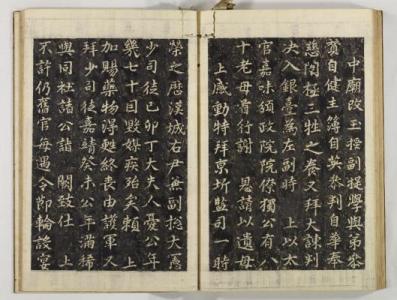 中廟改玉授副提學與弟參
贊自健主簿自英參判自華奉
慈闈極三牲之養又拜大諫判
決入銀臺為左副時 上以太
官嘉味頒政院院僚獨公有八
十老母肴行謝 恩請以遺母
上感動特拜京圻監司一時
榮之歷漢城右尹兼副捴大憲
少司徒己卯丁大夫人憂公年
幾七十日毀媒疾殆矣賴 上
加賜藥物得甦終喪由護軍又
拜少司徒嘉靖癸未公年滿稀
與同社諸公詣 闕致仕 上
不許仍舊官每遇令節輪設宴